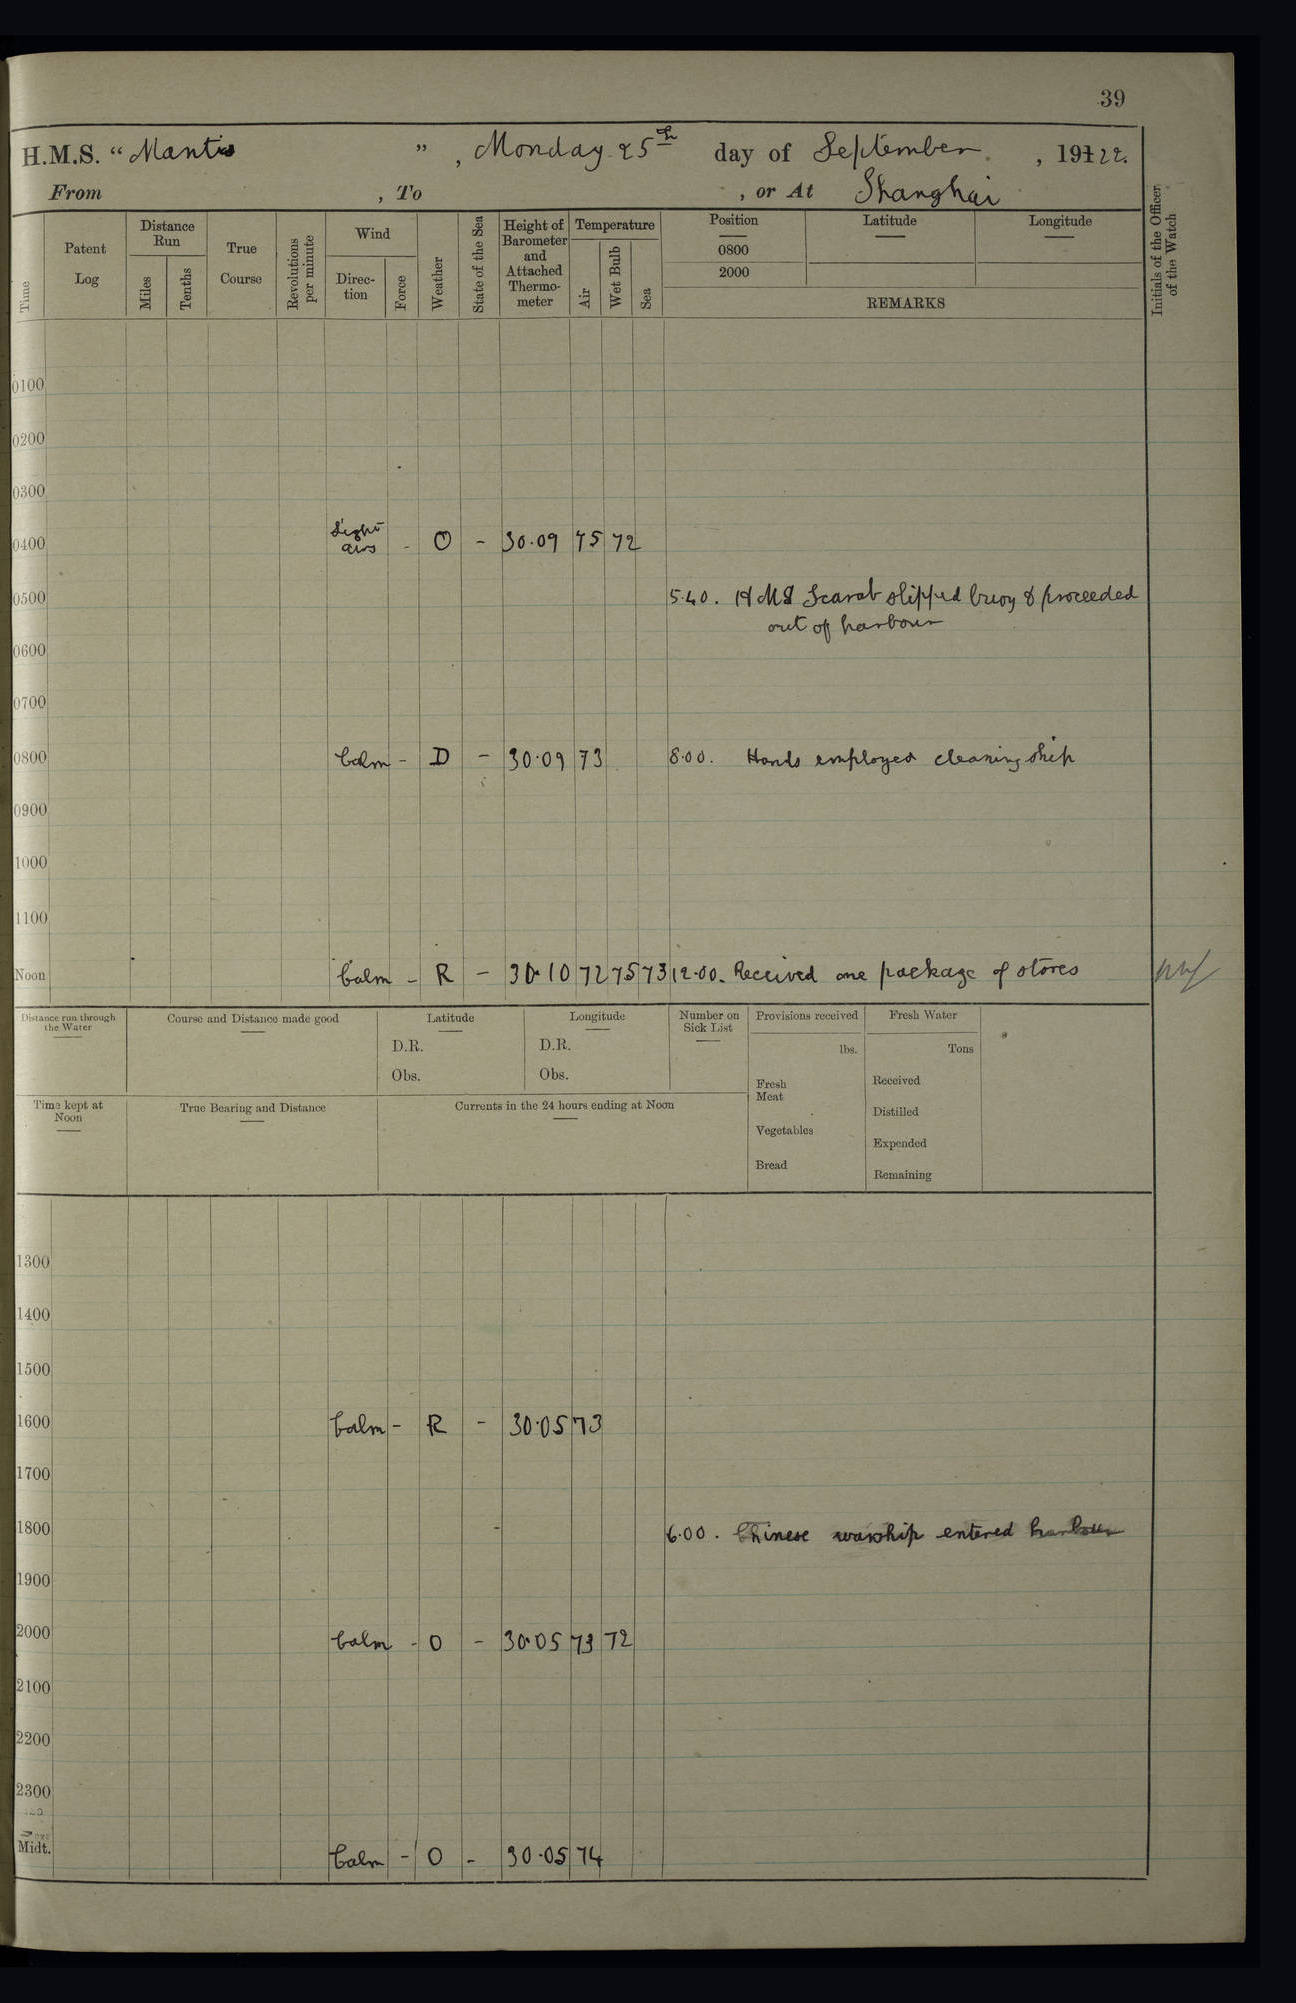 39
H.M.S. "Mantis", Monday 25th day of September, 19122.
From , To , or At Shanghai
Time
Patent Log
Distance Run
Miles
Tenths
True Course
Revolutions per minute
Wind
Direc-tion
Force
Weather
State of the Sea
Height of Barometer and Attached Thermo-meter
Temperature
Air
Wet Bulb
Sea
Position
0800
2000
Latitude
Longitude
REMARKS
Initials of the Officer of the Watch
0100
0200
0300
0400 Light airs - O - 30.09 75 72
0500 5.40. HMS Scarab slipped buoy & proceeded
out of harbour
0600
0700
0800 Calm - D - 30.09 73 8.00. Hands employed cleaning ship
0900
1000
1100
Noon Calm - R - 30.10 72 75 73 12.00. Received one package of stores
Distance run through the Water
Course and Distance made good
Latitude
D.R.
Obs.
Longitude
D.R.
Obs.
Number on Sick List
Provisions received
lbs.
Fresh Meat
Vegetables
Bread
Fresh Water
Tons
Received
Distilled
Expended
Remaining
Time kept at Noon
True Bearing and Distance
Currents in the 24 hours ending at Noon
1300
1400
1500
1600 Calm - R - 30.05 73
1700
1800 6.00. Chinese warship entered harbour
1900
2000 Calm - O - 30.05 73 72
2100
2200
2300
Midt. Calm - O - 30.05 74